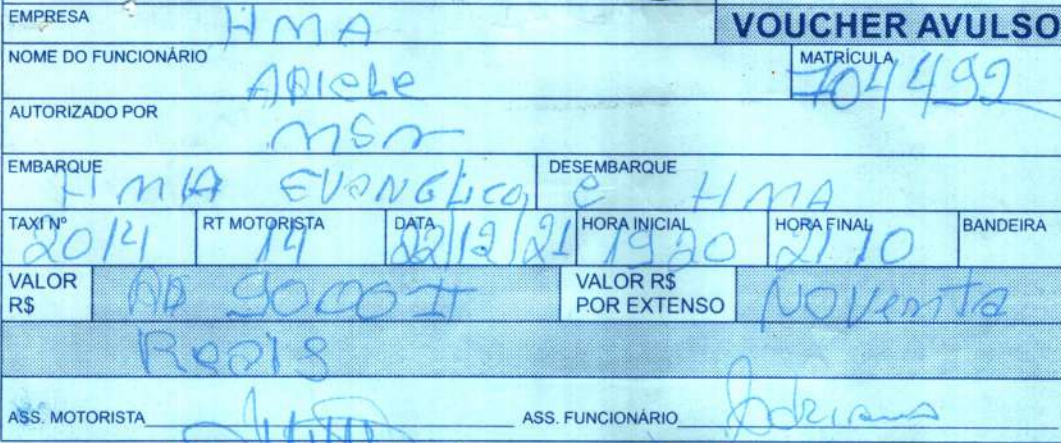 EMPRESA HMA VOUCHER AVULSO
NOME DO FUNCIONÁRIO MATRÍCULA
ADIELE 704492
AUTORIZADO POR
MSM
EMBARQUE HMA EVANGLICO e DESEMBARQUE HMA
TAXI Nº 2014 RT MOTORISTA 14 DATA 22/12/21 HORA INICIAL 1920 HORA FINAL 2110 BANDEIRA
VALOR R$ 9000 VALOR R$ POR EXTENSO NOVENTA
REAIS
ASS. MOTORISTA ASS. FUNCIONÁRIO Adriana